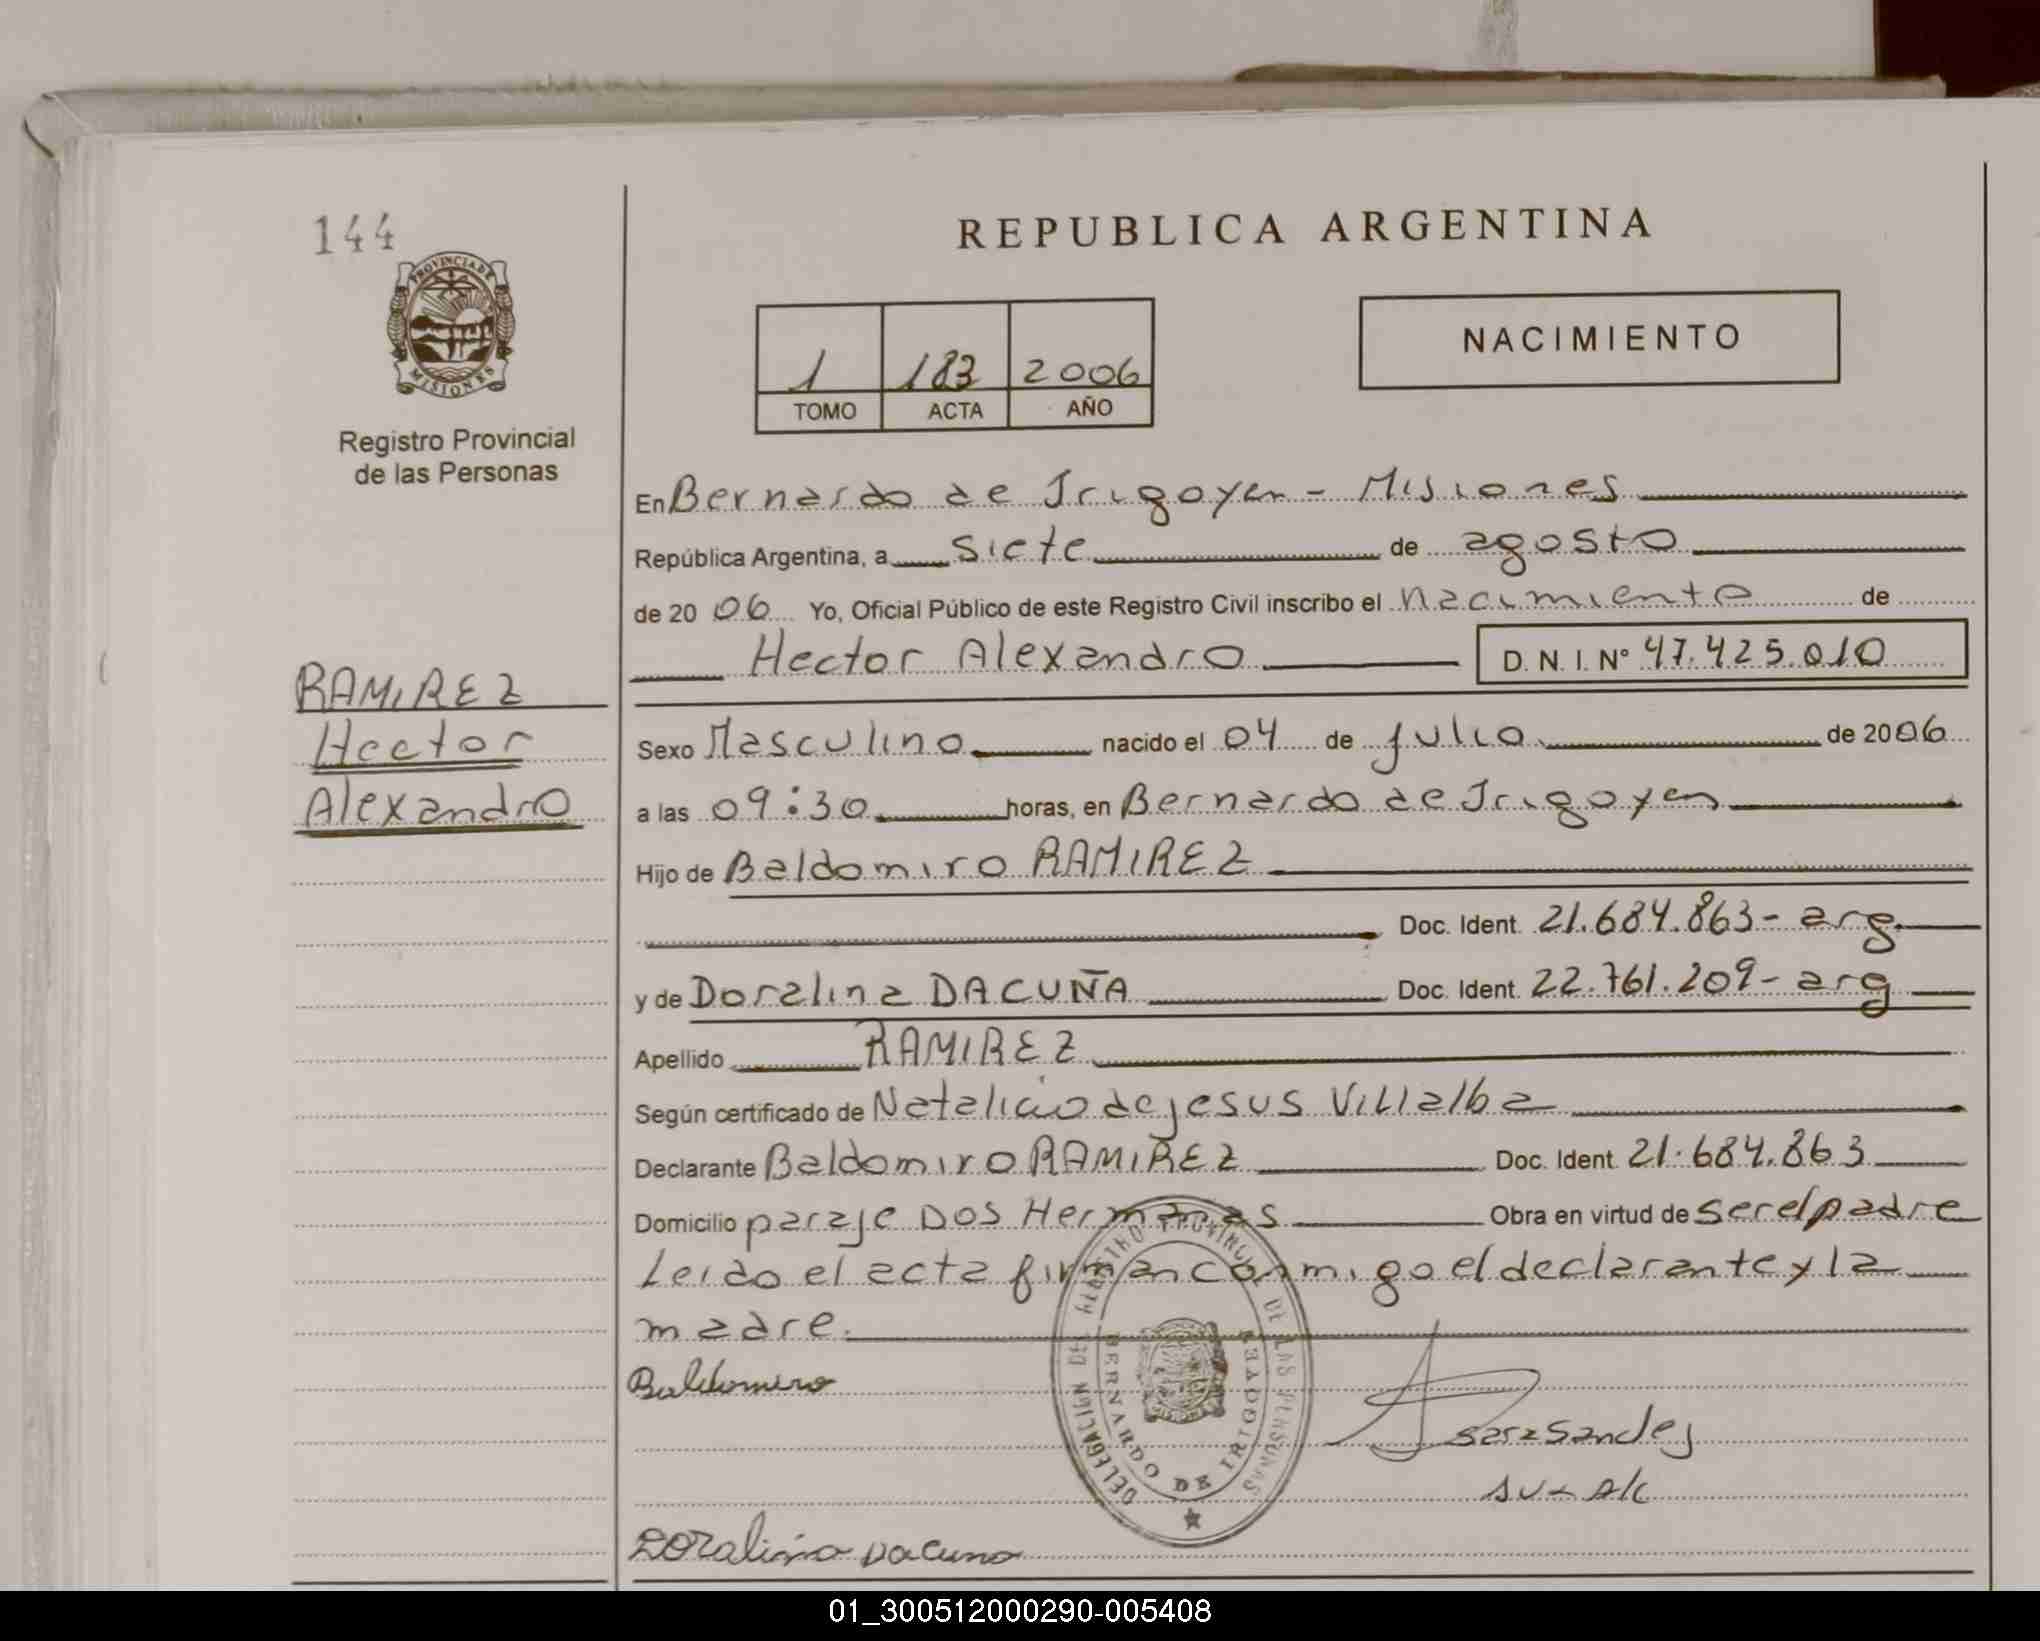 144
PROVINCIA DE
MISIONES
Registro Provincial
de las Personas
RAMIREZ
Hector
Alexandro
REPUBLICA ARGENTINA
1 183 2006
TOMO ACTA AÑO
NACIMIENTO
En Bernardo de Irigoyen - Misiones
República Argentina, a siete de agosto
de 20 06 Yo, Oficial Público de este Registro Civil inscribo el nacimiento de
Hector Alexandro D. N. I. Nº 47.425.010
Sexo Masculino nacido el 04 de julio de 2006
a las 09:30 horas, en Bernardo de Irigoyen
Hijo de Baldomiro RAMIREZ
Doc. Ident. 21.684.863- arg.
y de Doralina DACUÑA Doc. Ident. 22.761.209- arg
Apellido RAMIREZ
Según certificado de Natalicio de jesus Villalba
Declarante Baldomiro RAMIREZ Doc. Ident. 21.684.863
Domicilio paraje Dos Hermanas Obra en virtud de ser el padre
Leido el acta firman conmigo el declarante y la
madre.
Baldomiro
DELEGACION DEL REGISTRO PROVINCIAL DE LAS PERSONAS
BERNARDO DE IRIGOYEN
Doralina Dacuna
01_300512000290-005408